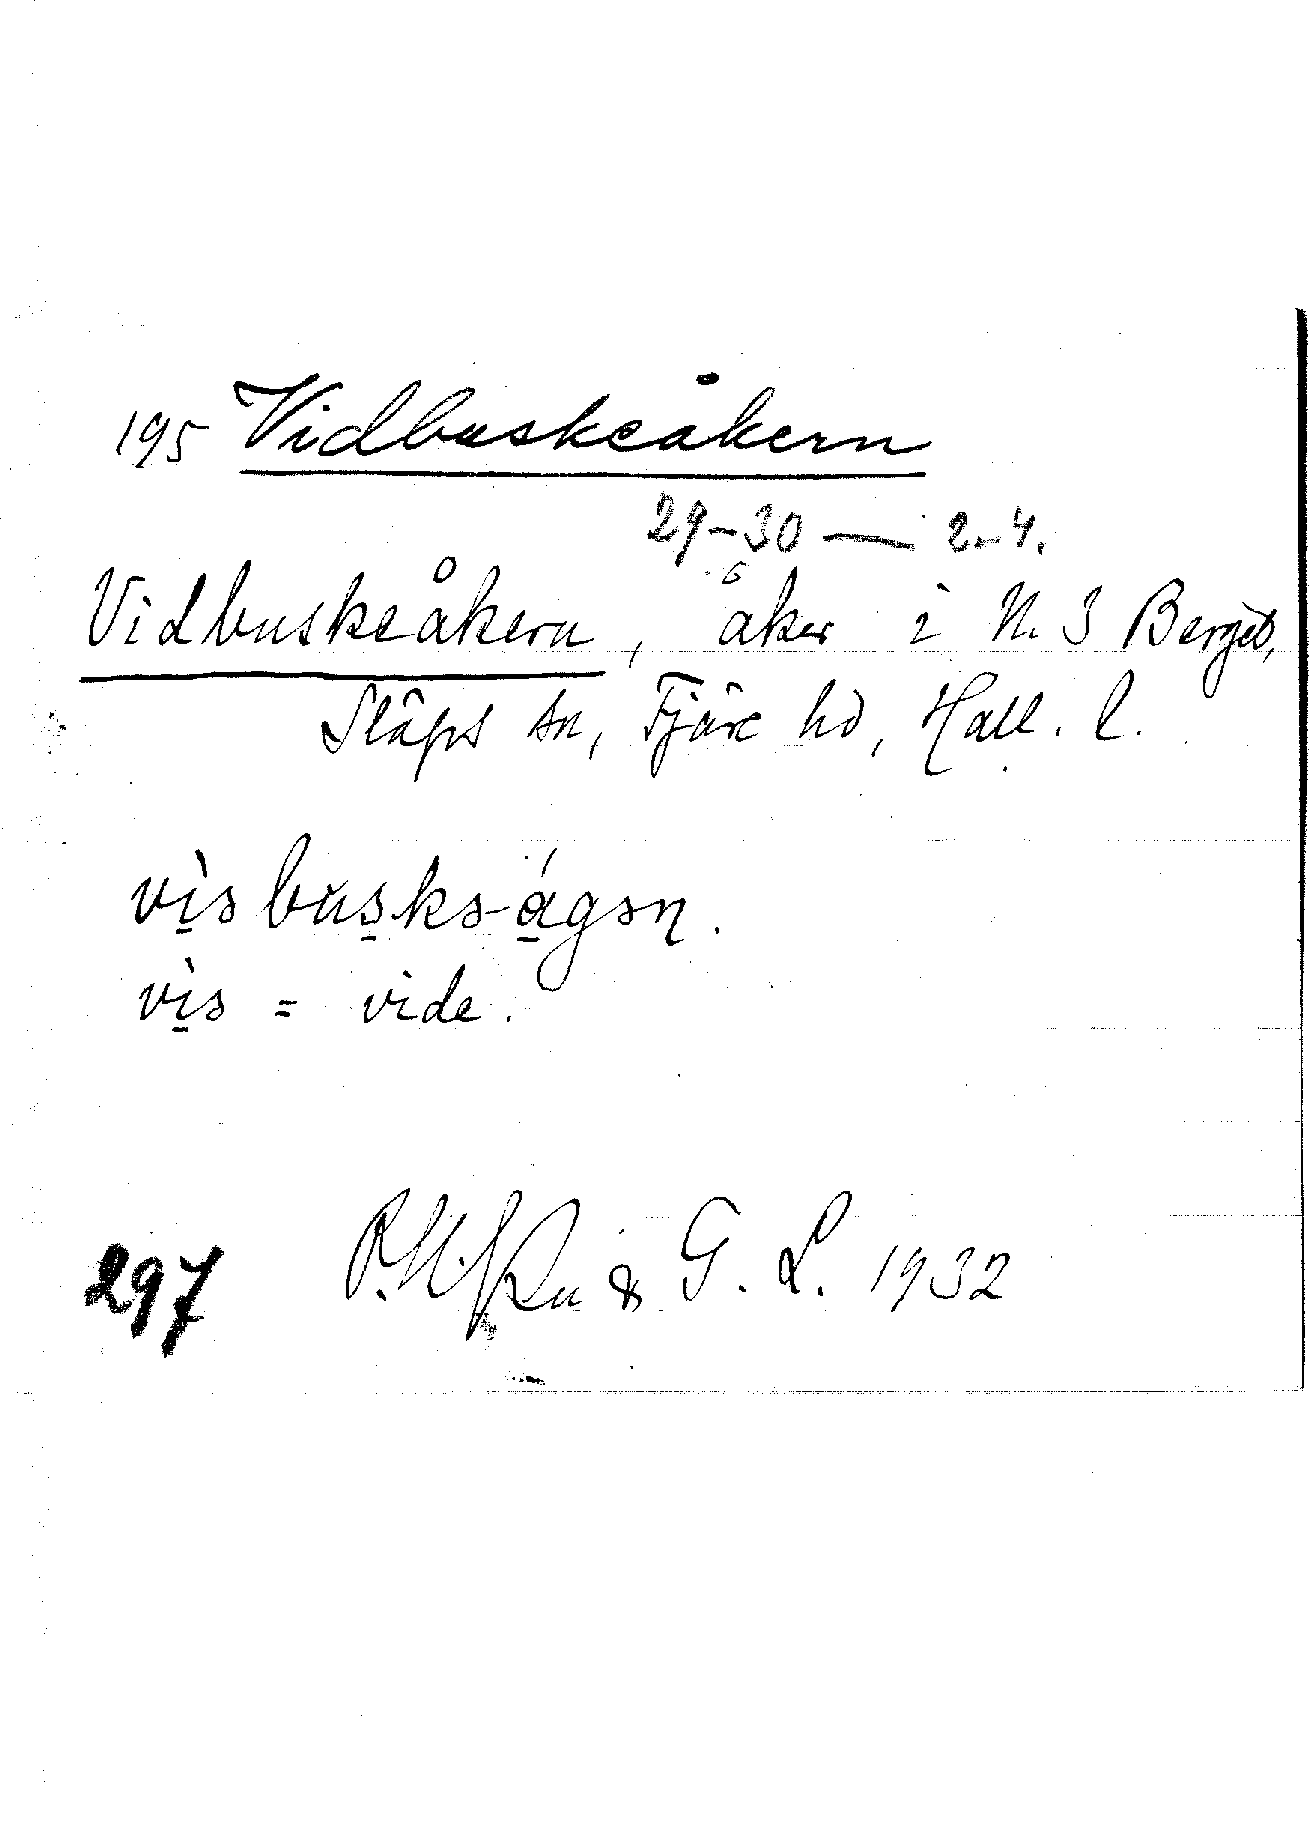 195 Vidbuskeåkern
29-30 — 2-4.
Vidbuskeåkern, åker i N. 3 Berget,
Släps sn, Fjäre hd, Hall. l.
vìsbusks-ágsn.
vìs = vide.
297 & G. L. 1932